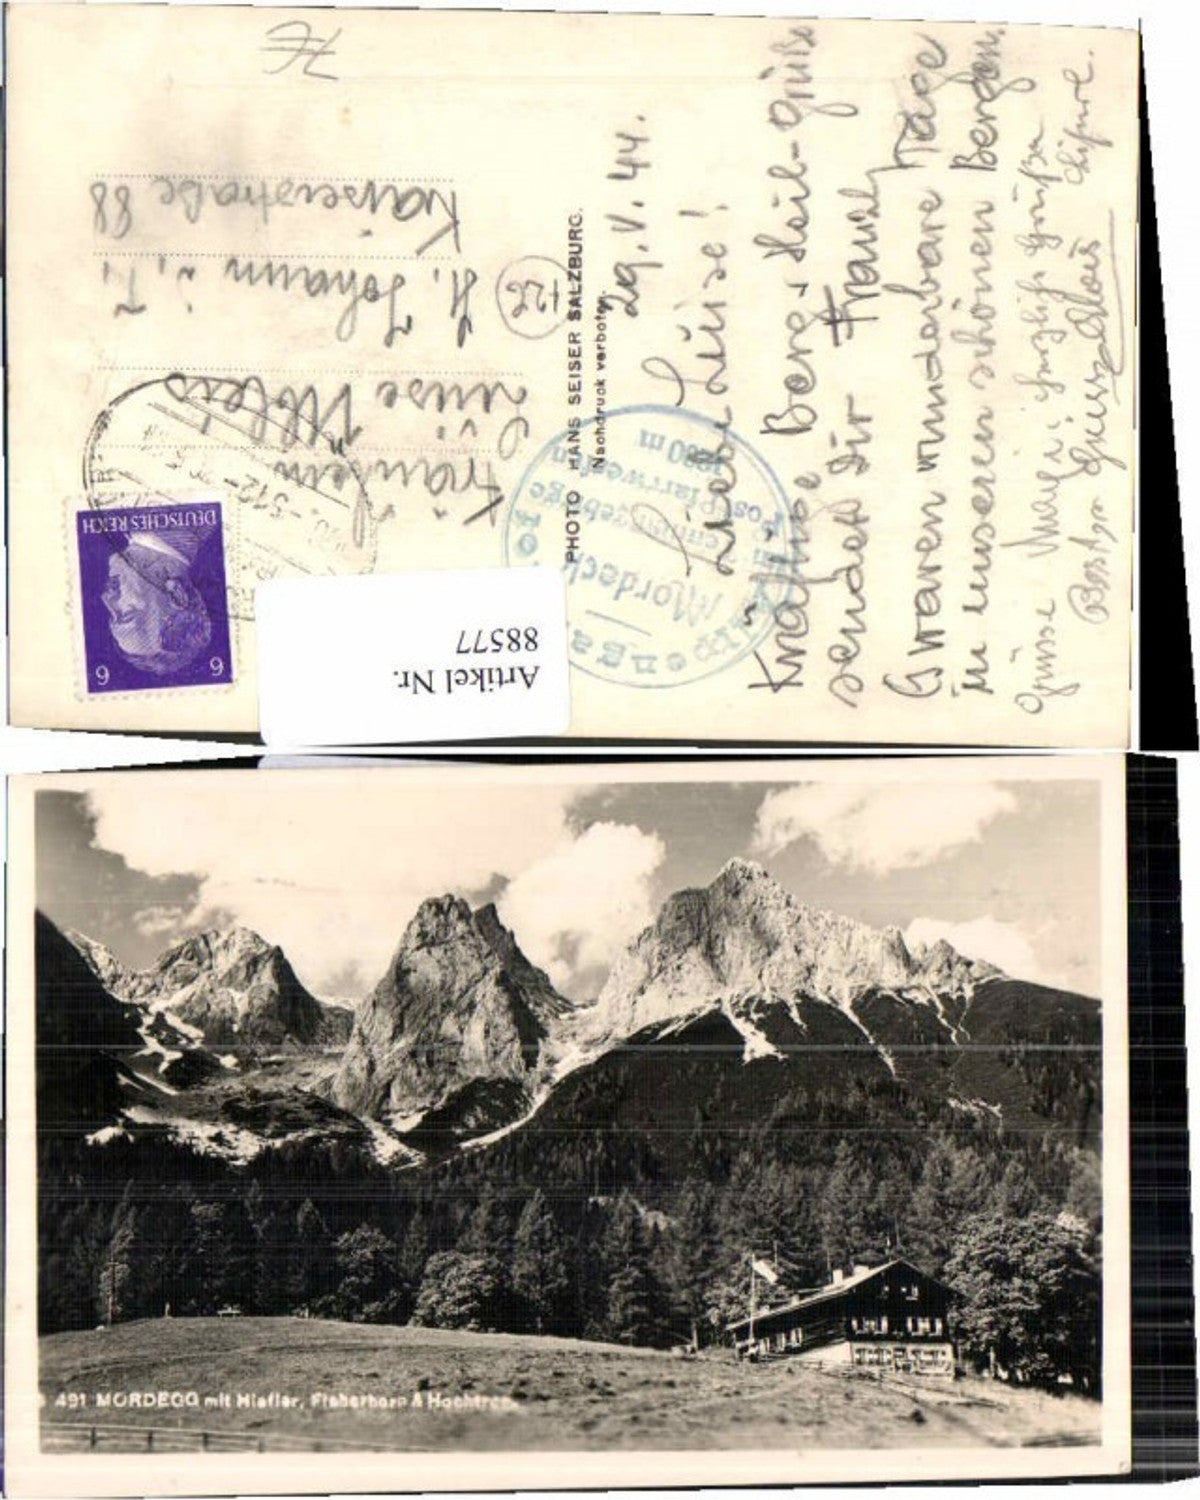 29. V. 44.
Liebe Luise!
Kräftige Berg- Heil-Grüße
sendet Dir Franzl
Es waren wunderbare Tage
in unseren schönen Bergen.
Grüsse
Beste Grüsse
PHOTO HANS SEISER SALZBURG.
Nachdruck verboten.
Fräulein
Luise
St. Johann i. T.
Kaiserstraße 88
DEUTSCHES REICH
6 6
Mordeck
Post Pfarrwerfen
Artikel Nr.
88577
491 MORDEGG mit Hiefler, Fieberhorn & Hochtron